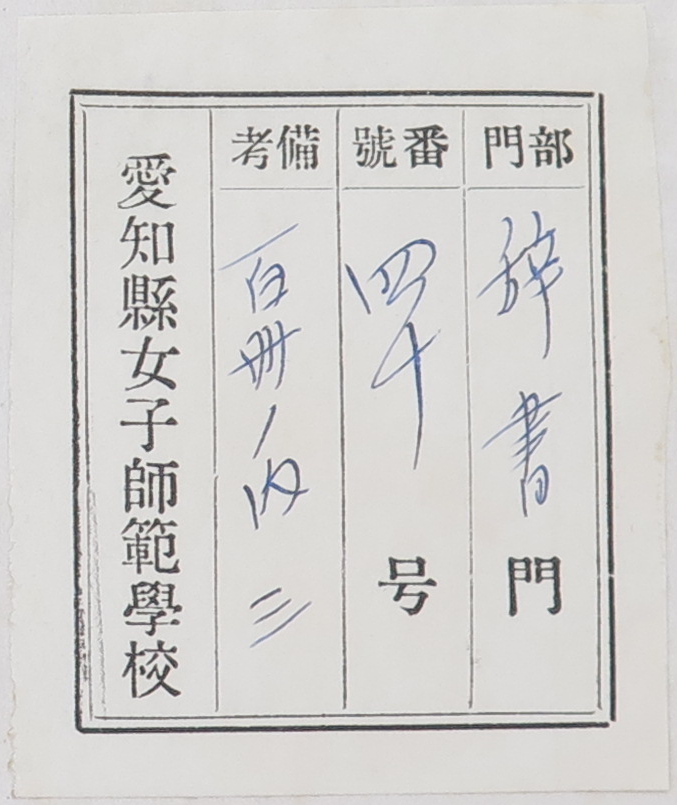 部門
辞書門
番號
四十号
備考
百冊ノ内三
愛知縣女子師範學校